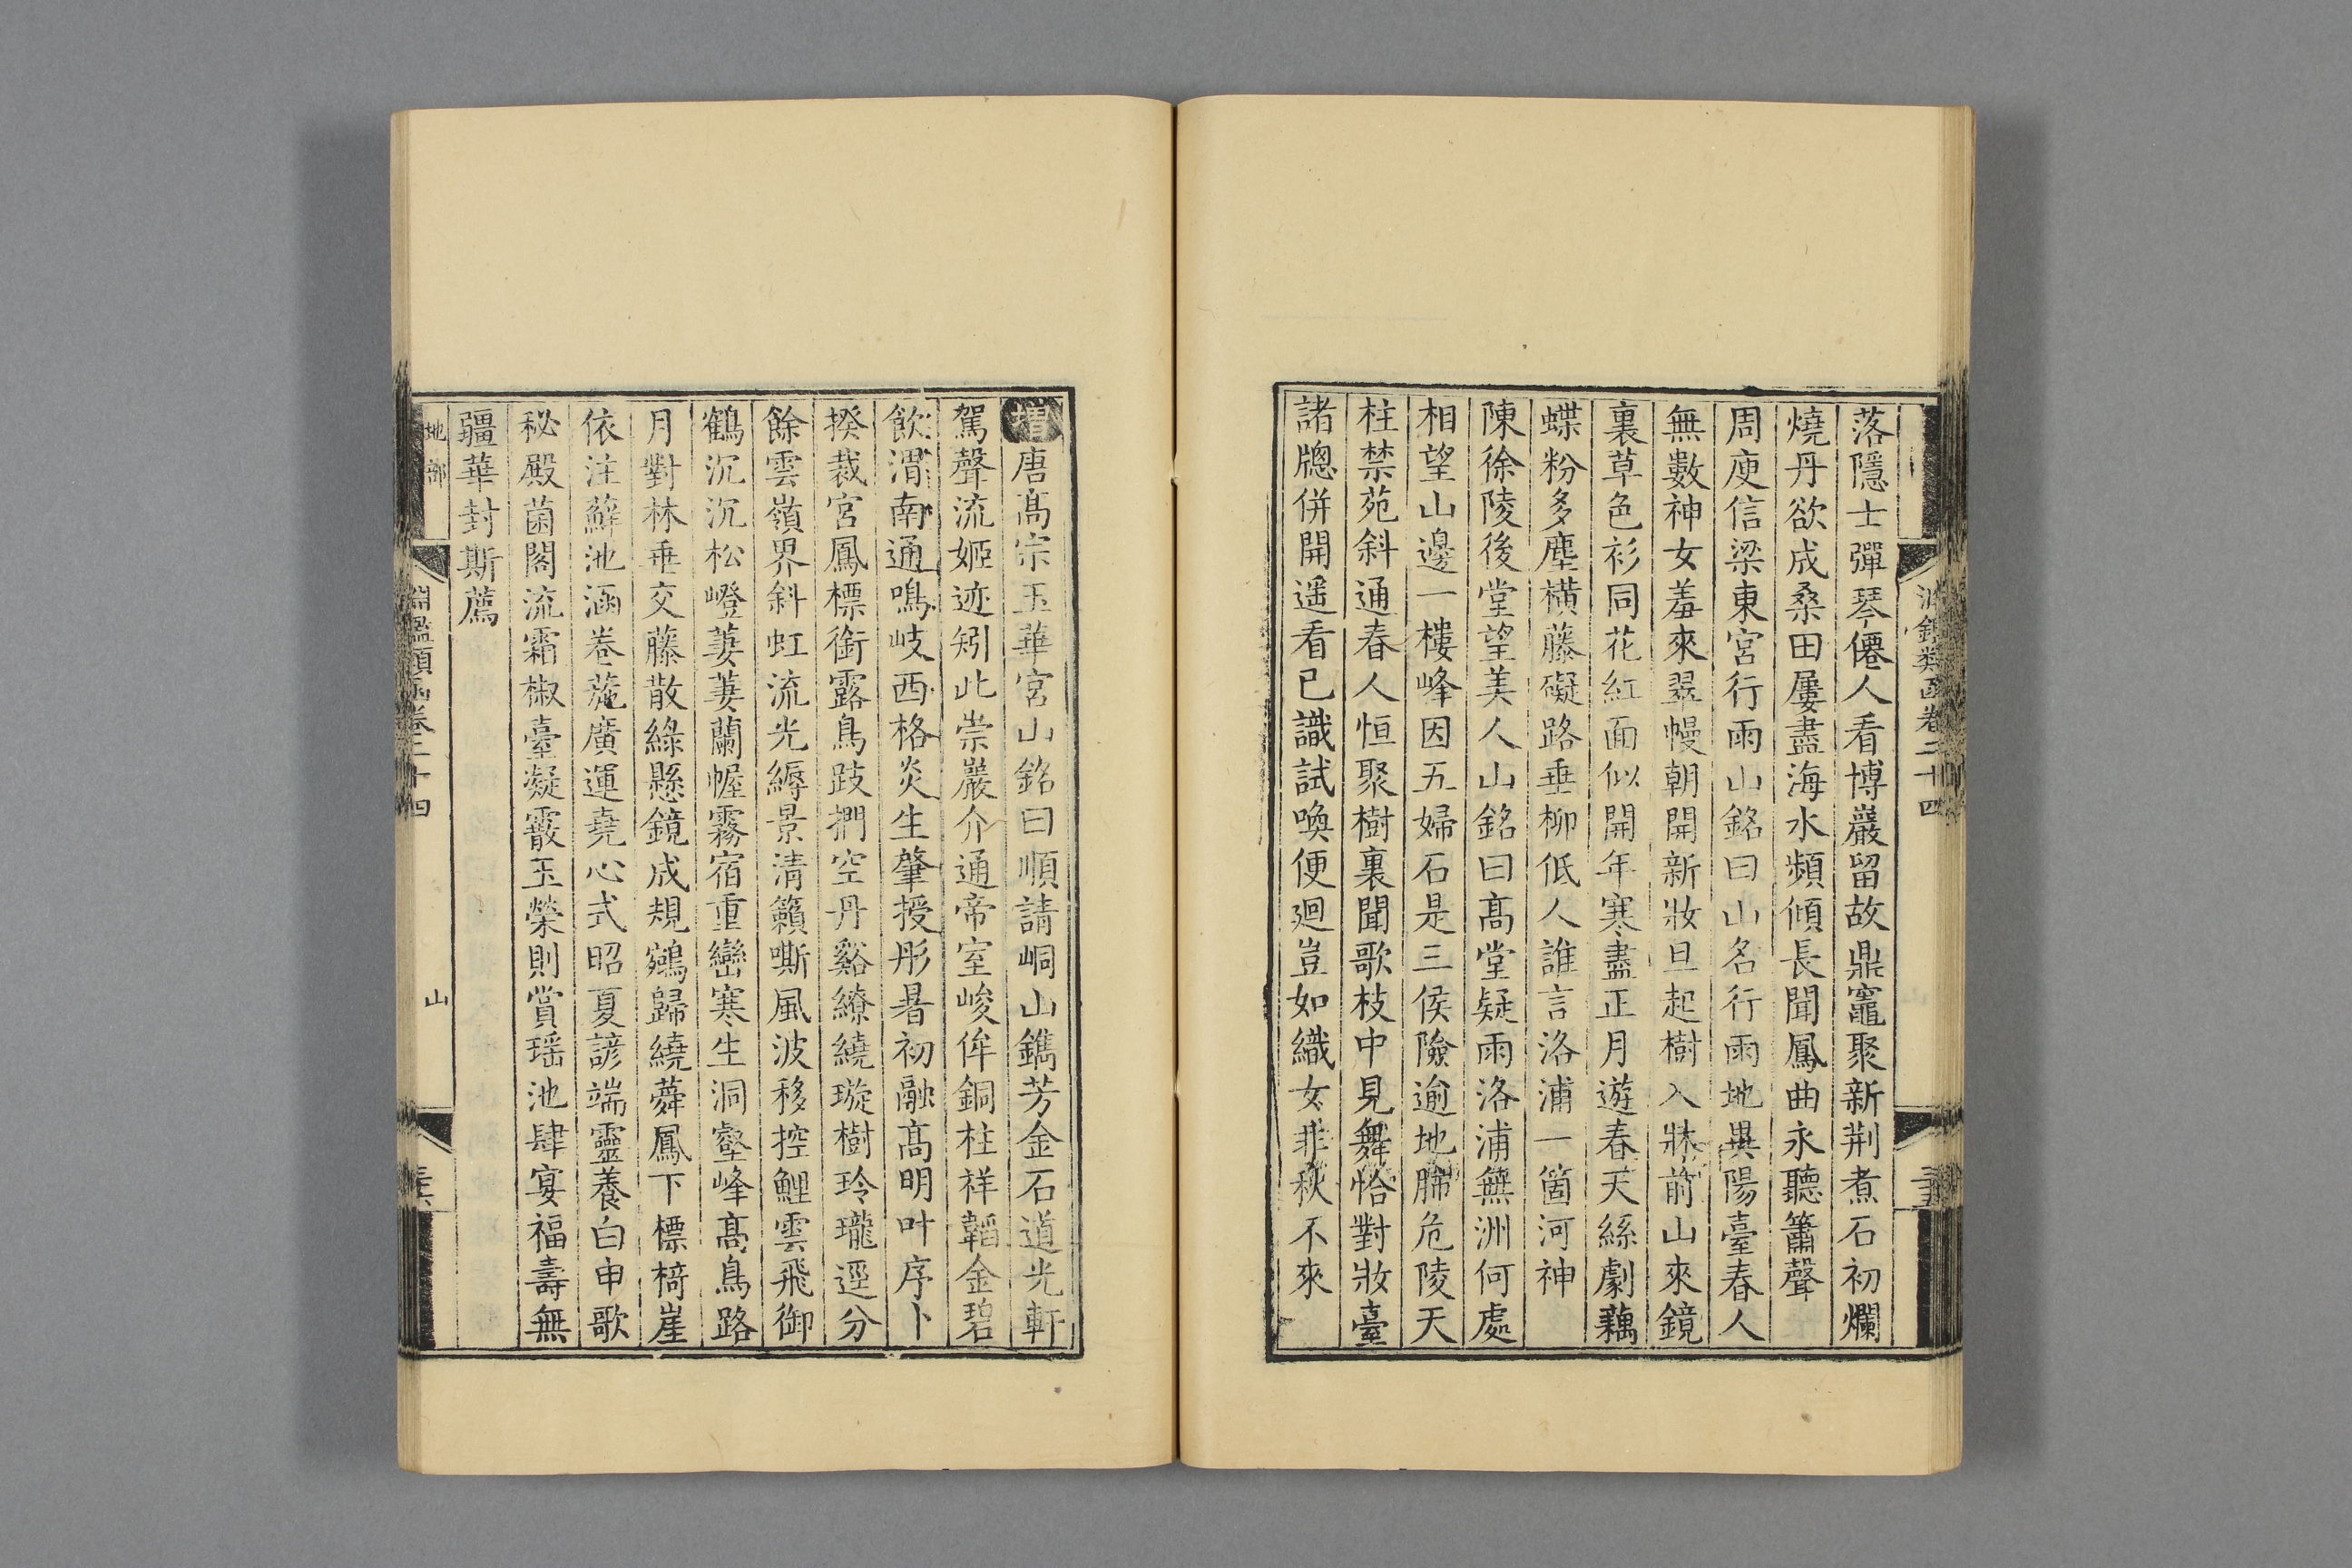 淵鑑類函卷二十四
落隱士彈琴僊人看博巖留故鼎竈聚新荆煮石初爛
燒丹欲成桑田屢盡海水頻傾長聞鳳曲永聽簫聲
周庾信梁東宮行雨山銘曰山名行雨地異陽臺春人
無數神女羞來翠幔朝開新妝旦起樹入牀前山來鏡
裏草色衫同花紅面似開年寒盡正月遊春天絲劇藕
蝶粉多塵橫藤礙路垂柳低人誰言洛浦一箇河神
陳徐陵後堂望美人山銘曰高堂疑雨洛浦無洲何處
相望山邊一樓峰因五婦石是三侯險逾地肺危陵天
柱禁苑斜通春人恒聚樹裏聞歌枝中見舞恰對妝臺
諸牕併開遥看已識試喚便廻豈如織女非秋不來
增唐高宗玉華宮山銘曰順請峒山鐫芳金石道光軒
駕聲流姬迹矧此崇巖介通帝室峻侔銅柱祥韜金碧
飲渭南通鳴岐西格炎生肇授彤暑初融高明叶序卜
揆裁宮鳳標銜露鳥跂捫空丹谿繚繞璇樹玲瓏逕分
餘雲嶺界斜虹流光縟景清籟嘶風波移控鯉雲飛御
鶴沉沉松嶝萋萋蘭幄霧宿重巒寒生洞壑峰高鳥路
月對林垂交藤散綠懸鏡成規鵷歸繞蕣鳳下標椅崖
依注蘚池涵卷葹廣運堯心式昭夏諺端靈養白申歌
秘殿菌閣流霜椒臺凝霰玉榮則賞瑶池肆宴福壽無
疆華封斯薦
地部
淵鑑類函卷二十四
山